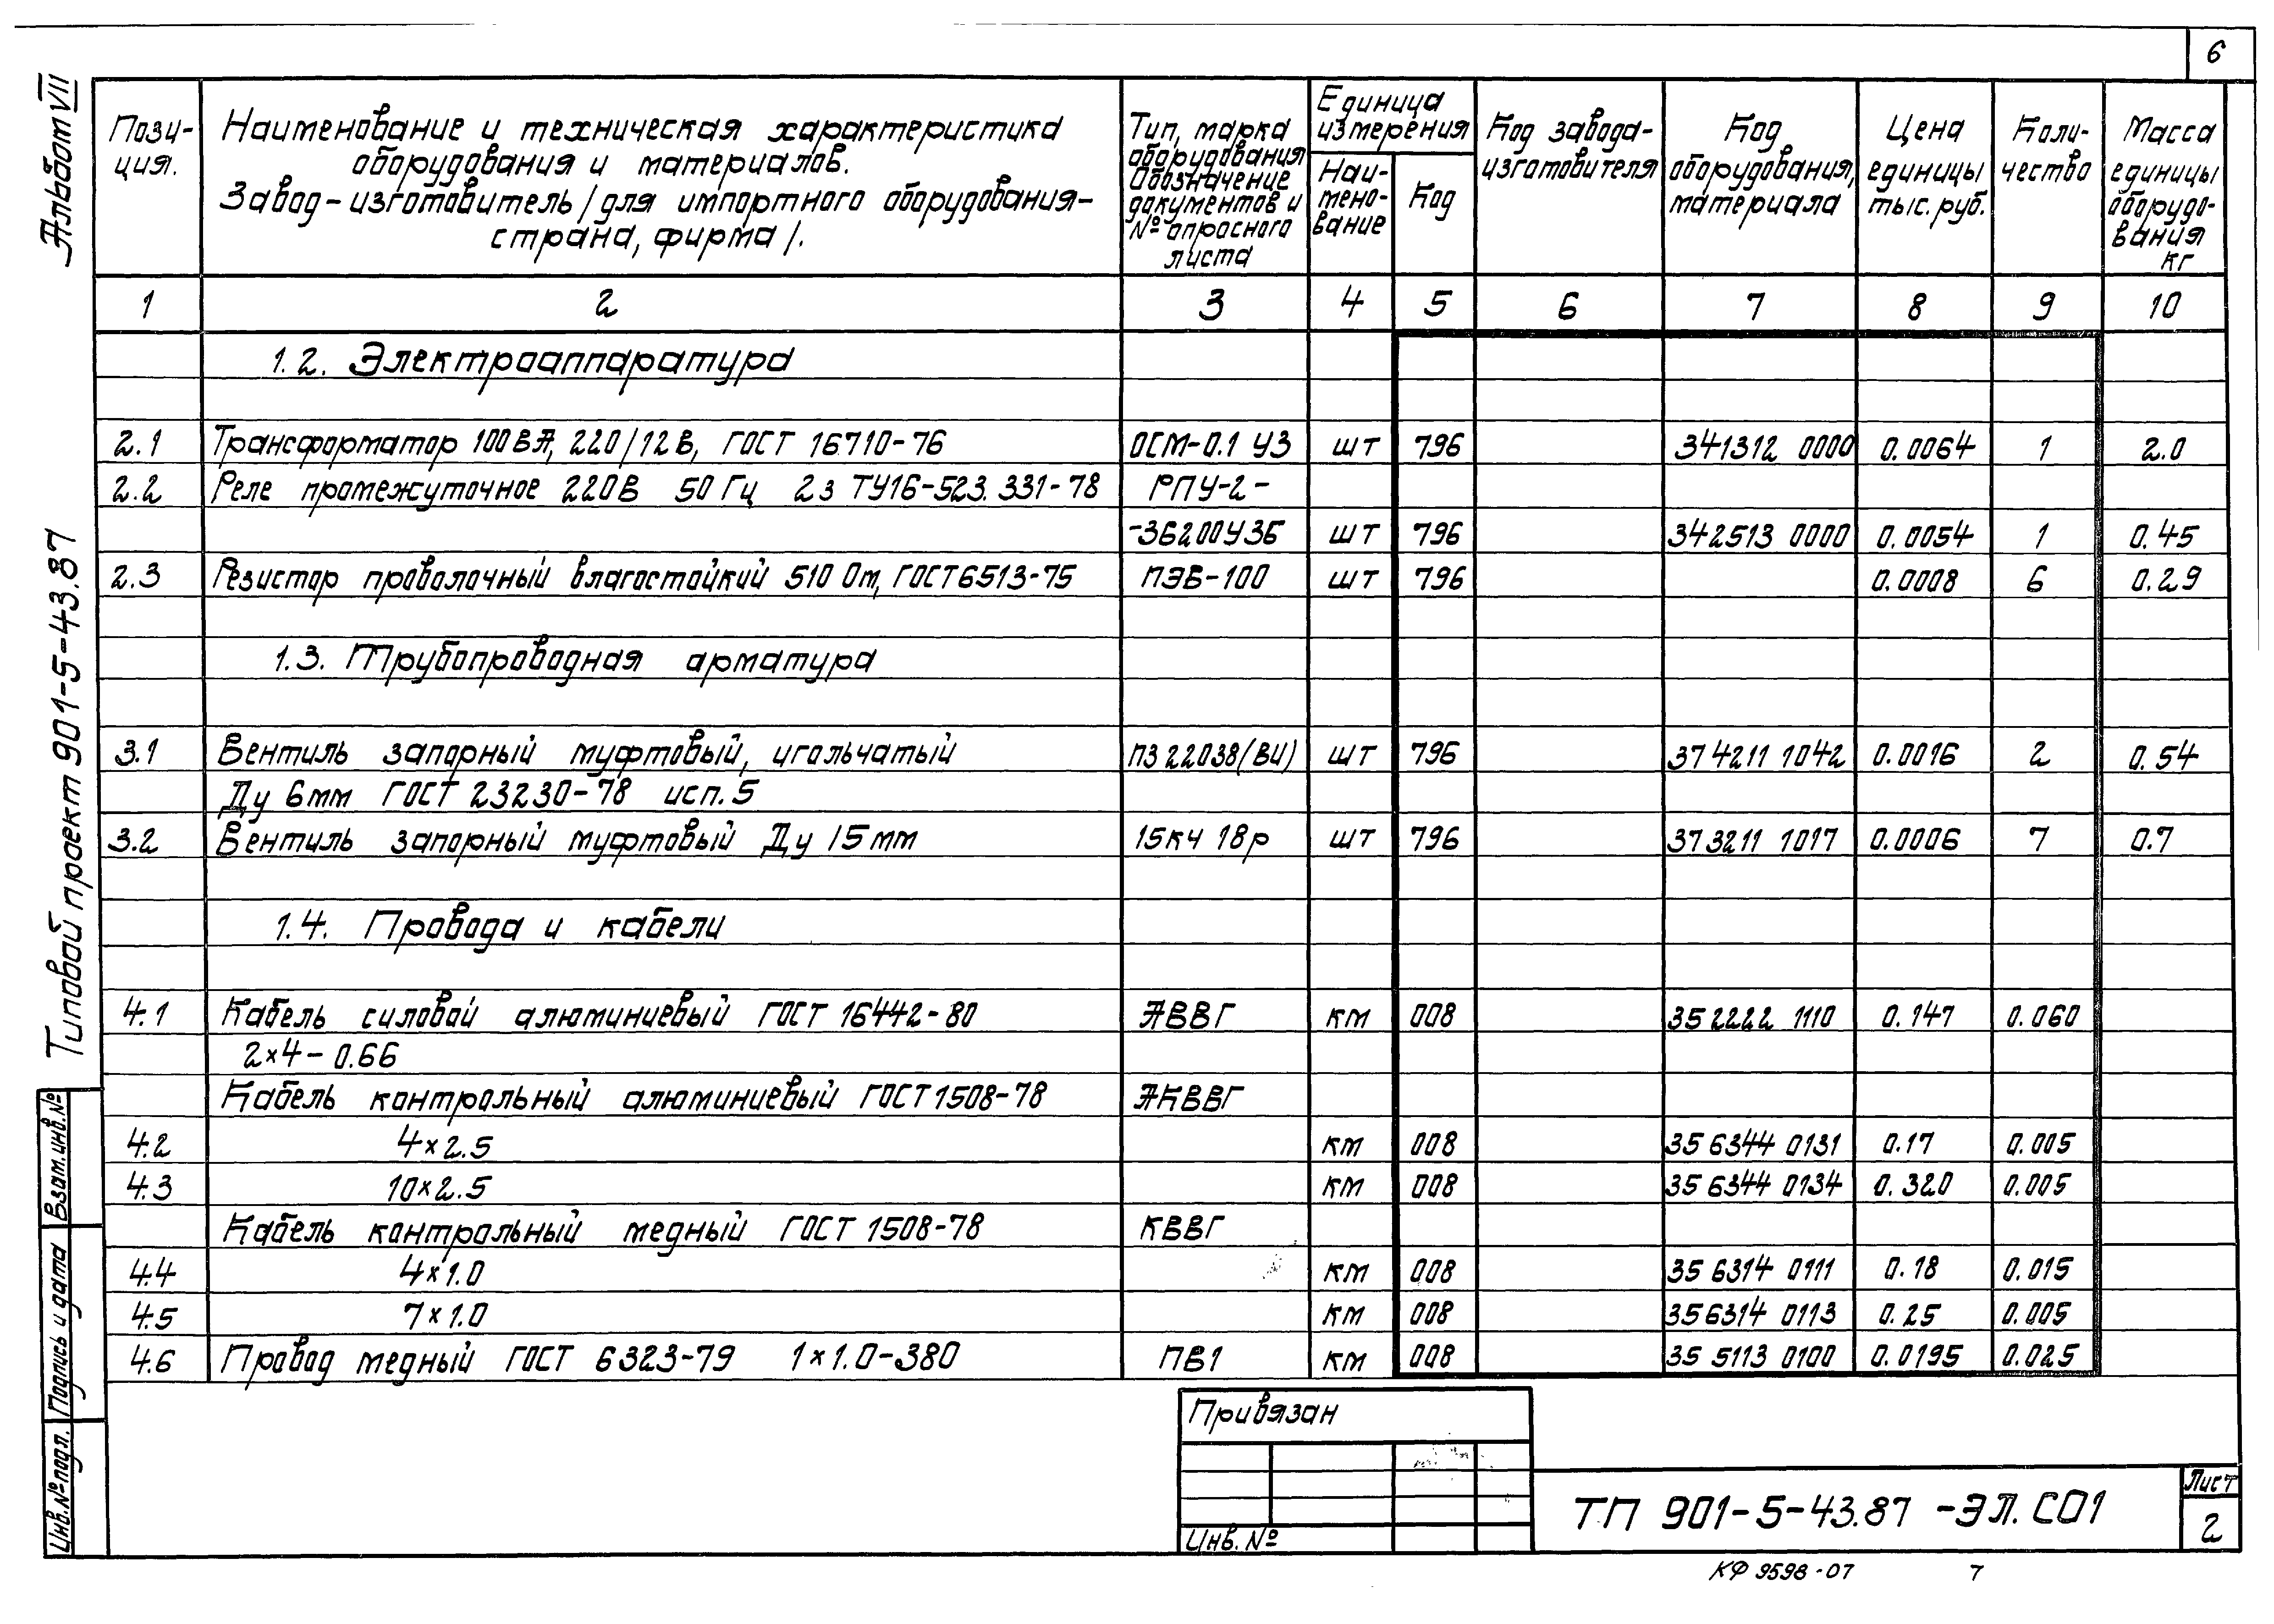 6
Альбом VII
Типовой проект 901-5-43.87
Взам.инв.№
Подпись и дата
Инв.№подл.
Пози-
ция.
Наименование и техническая характеристика
оборудования и материалов.
Завод-изготовитель /для импортного оборудования-
страна, фирма/.
Тип, марка
оборудования
Обозначение
документов и
№ опросного
листа
Единица
измерения
Наи-
мено-
вание
Код
Код завода-
изготовителя
Код
оборудования,
материала
Цена
единицы
тыс. руб.
Коли-
чество
Масса
единицы
оборудо-
вания
кг
1 2 3 4 5 6 7 8 9 10
1.2. Электроаппаратура
2.1 Трансформатор 100 ВА, 220/12 В, ГОСТ 16710-76 ОСМ-0.1 У3 шт 796 341312 0000 0.0064 1 2.0
2.2 Реле промежуточное 220В 50 Гц 2з ТУ16-523.331-78 РПУ-2-
-36200У3Б шт 796 342513 0000 0.0054 1 0.45
2.3 Резистор проволочный влагостойкий 510 Ом, ГОСТ 6513-75 ПЭВ-100 шт 796 0.0008 6 0.29
1.3. Трубопроводная арматура
3.1 Вентиль запорный муфтовый, игольчатый ПЗ 22038(ВИ) шт 796 374211 1042 0.0016 2 0.54
Ду 6мм ГОСТ 23230-78 исп. 5
3.2 Вентиль запорный муфтовый Ду 15 мм 15кч 18р шт 796 373211 1017 0.0006 7 0.7
1.4. Провода и кабели
4.1 Кабель силовой алюминиевый ГОСТ 16442-80 АВВГ км 008 35 2222 1110 0.147 0.060
2×4-0.66
Кабель контрольный алюминиевый ГОСТ 1508-78 АКВВГ
4.2 4×2.5 км 008 35 6344 0131 0.17 0.005
4.3 10×2.5 км 008 35 6344 0134 0.320 0.005
Кабель контрольный медный ГОСТ 1508-78 КВВГ
4.4 4×1.0 км 008 35 6314 0111 0.18 0.015
4.5 7×1.0 км 008 356314 0113 0.25 0.005
4.6 Провод медный ГОСТ 6323-79 1×1.0-380 ПВ1 км 008 35 5113 0100 0.0195 0.025
Привязан
Инв. №
ТП 901-5-43.87 -ЭЛ.СО1
Лист
2
КФ 9598-07 7